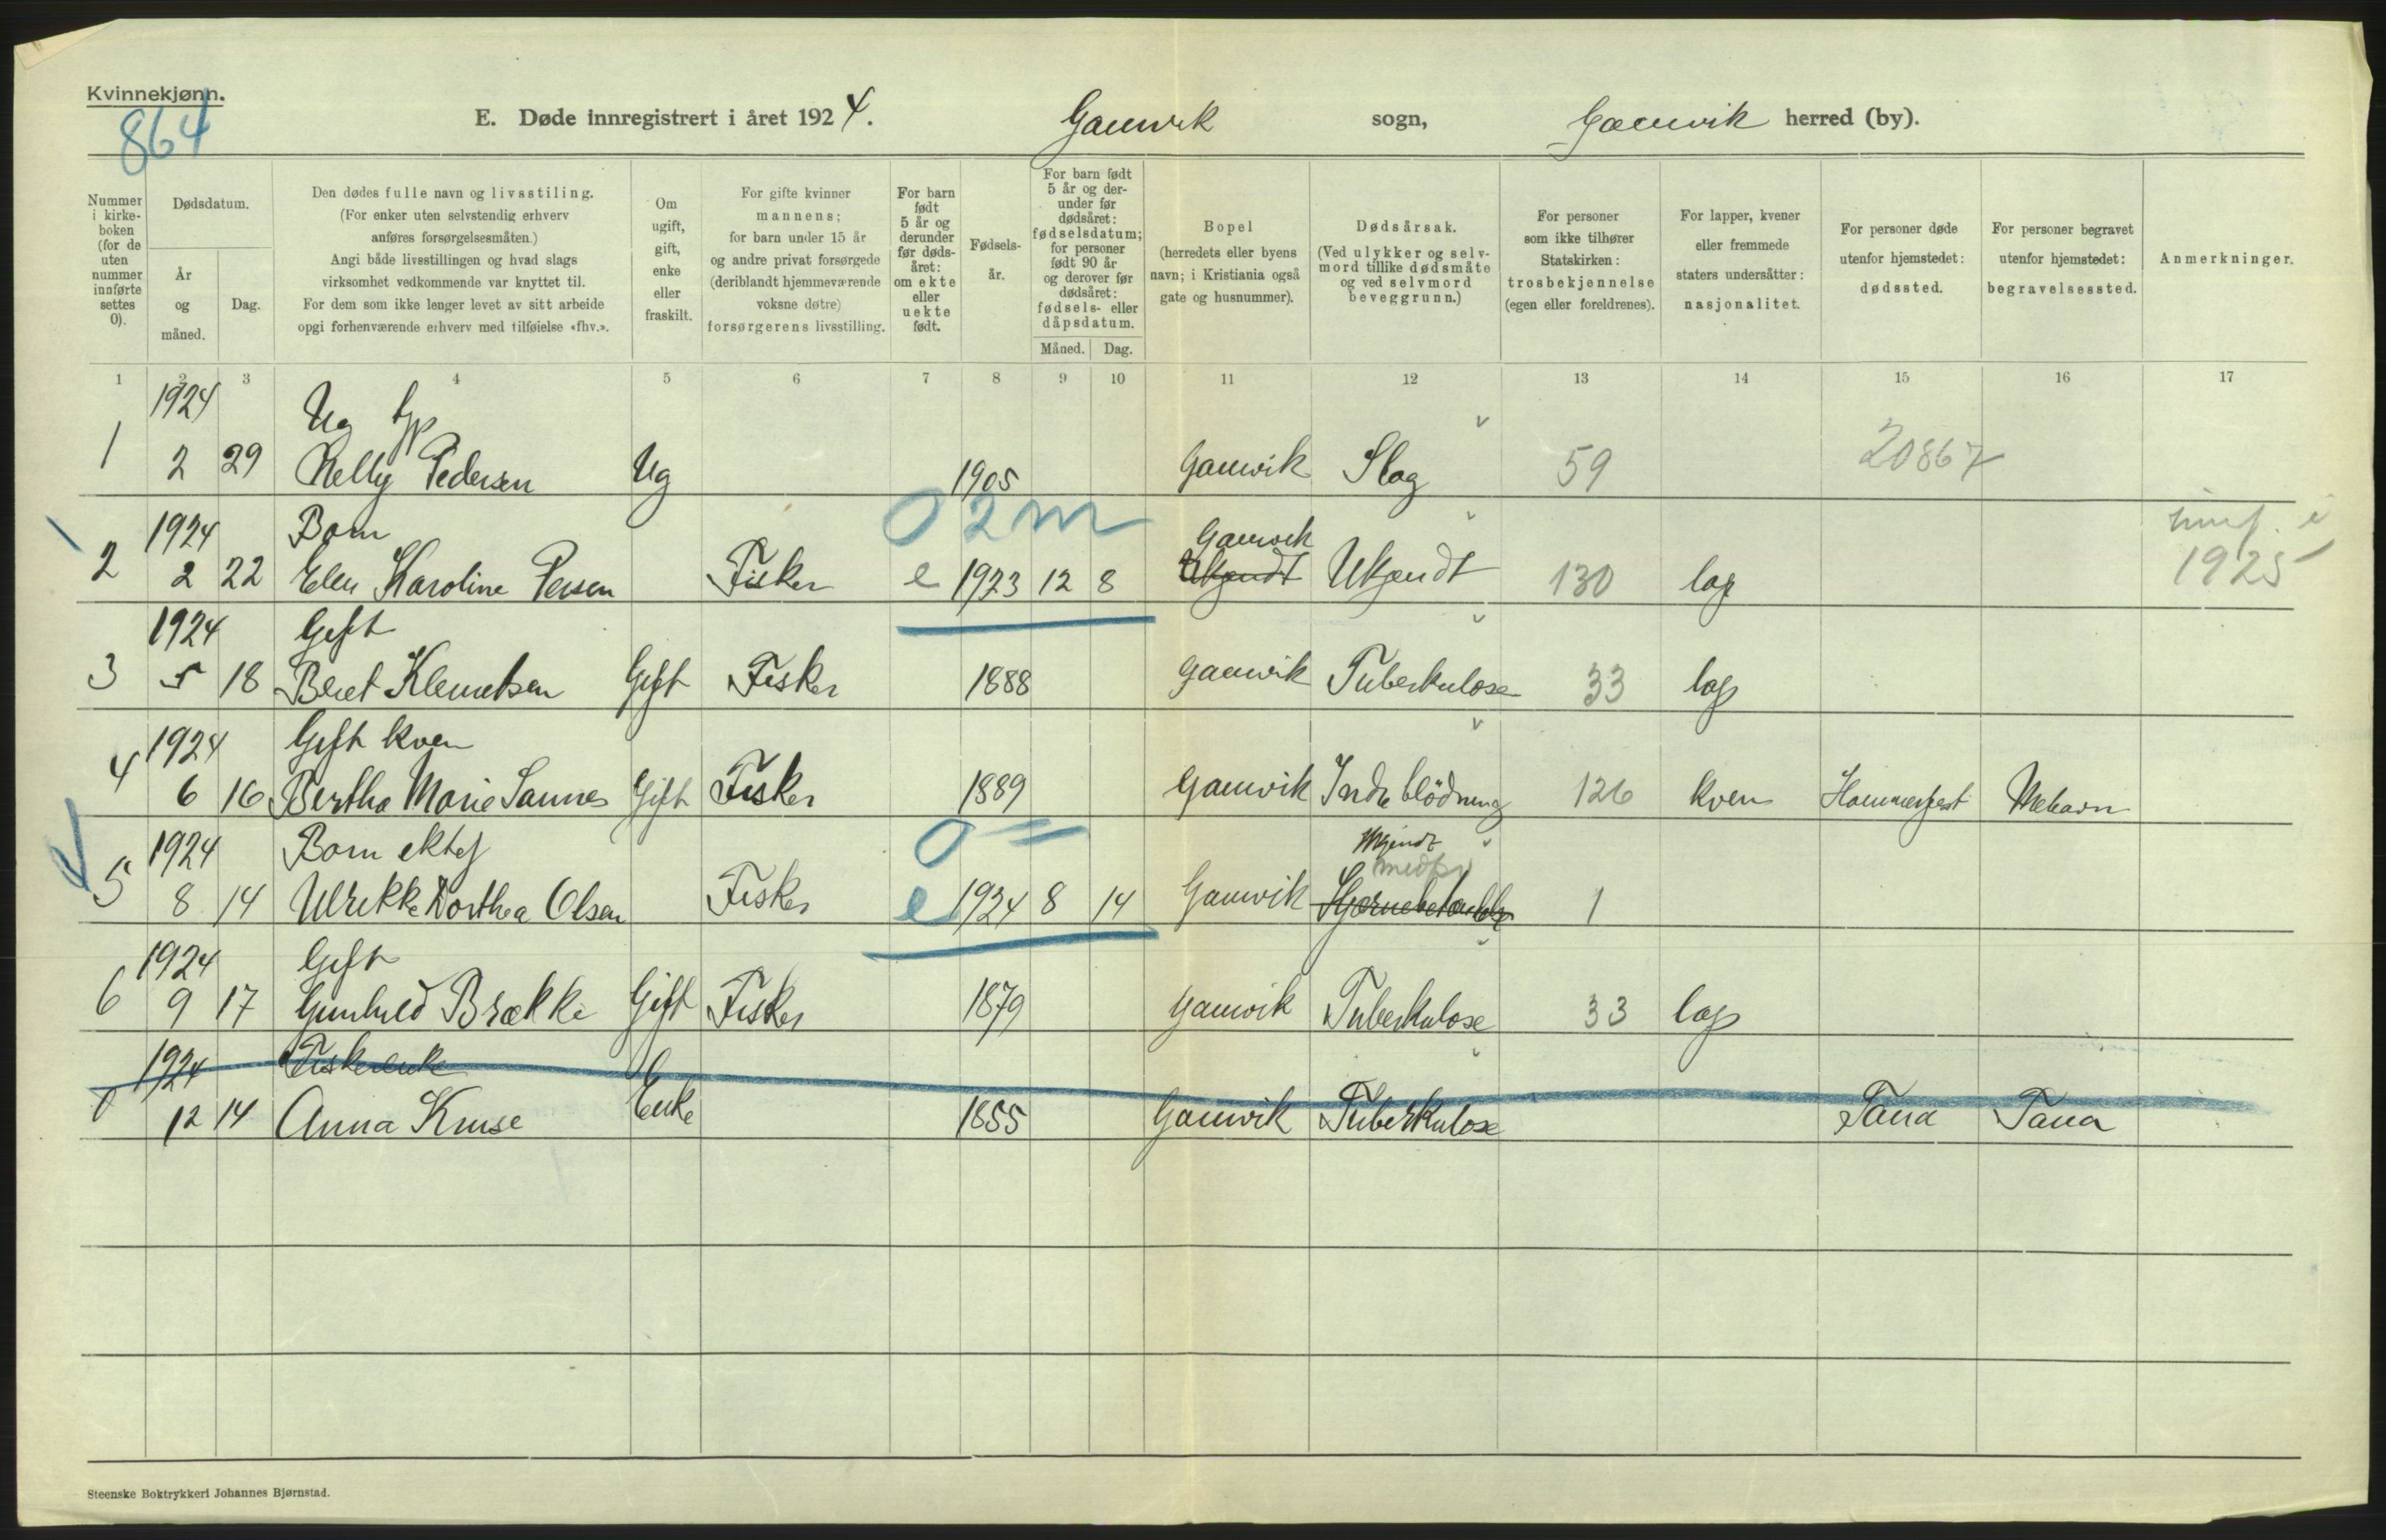 Kvinnekjønn.
864
E. Døde innregistrert i året 1924.
Gamvik sogn, Gamvik herred (by).
Nummer i kirkeboken (for de uten nummer innførte settes 0).
Dødsdatum.
År og måned.
Dag.
Den dødes fulle navn og livsstiling.
(For enker uten selvstendig erhverv
anføres forsørgelsesmåten.)
Angi både livsstillingen og hvad slags
virksomhet vedkommende var knyttet til.
For dem som ikke lenger levet av sitt arbeide
opgi forhenværende erhverv med tilføielse «fhv.».
Om
ugift,
gift,
enke
eller
fraskilt.
For gifte kvinner
mannens;
for barn under 15 år
og andre privat forsørgede
(deriblandt hjemmeværende
voksne døtre)
forsørgerens livsstilling.
For barn
født
5 år og
derunder
før døds-
året:
om ekte
eller
uekte
født.
Fødsels-
år.
For barn født
5 år og der-
under før
dødsåret:
fødselsdatum;
for personer
født 90 år
og derover før
dødsåret:
fødsels- eller
dåpsdatum.
Måned. Dag.
Bopel
(herredets eller byens
navn; i Kristiania også
gate og husnummer).
Dødsårsak.
(Ved ulykker og selv-
mord tillike dødsmåte
og ved selvmord
beveggrunn.)
For personer
som ikke tilhører
Statskirken:
trosbekjennelse
(egen eller foreldrenes).
For lapper, kvener
eller fremmede
staters undersåtter:
nasjonalitet.
For personer døde
utenfor hjemstedet:
dødssted.
For personer begravet
utenfor hjemstedet:
begravelsessted.
Anmerkninger.
1 2 3 4 5 6 7 8 9 10 11 12 13 14 15 16 17
1924 Ug
1 2 29 Nelly Pedersen Ug 1905 Gamvik Slag 59 20867
0 2 m
1924 Barn Gamvik innf. i
2 2 22 Elen Karoline Persen Fisker e 1923 12 8 Ukjendt Ukjendt 130 lap 1925
1924 Gift
3 5 18 Beret Klemetsen Gift Fisker 1888 Gamvik Tuberkulose 33 lap
1924 Gift kven
4 6 16 Bertha Marie Sannes Gift Fisker 1889 Gamvik Indre blödning 126 kven Hammerfest Mehavn
0 =
1924 Barn ektef Ukjendt
medf
5 8 14 Ulrikke Dorthea Olsen Fisker e 1924 8 14 Gamvik 1
1924 Gift
6 9 17 Gunhild Brække Gift Fisker 1879 Gamvik Tuberkulose 33 lap
1924 Fiskerenke
0 12 14 Anna Kruse Enke 1855 Gamvik Tuberkulose Tana Tana
Steenske Boktrykkeri Johannes Bjørnstad.